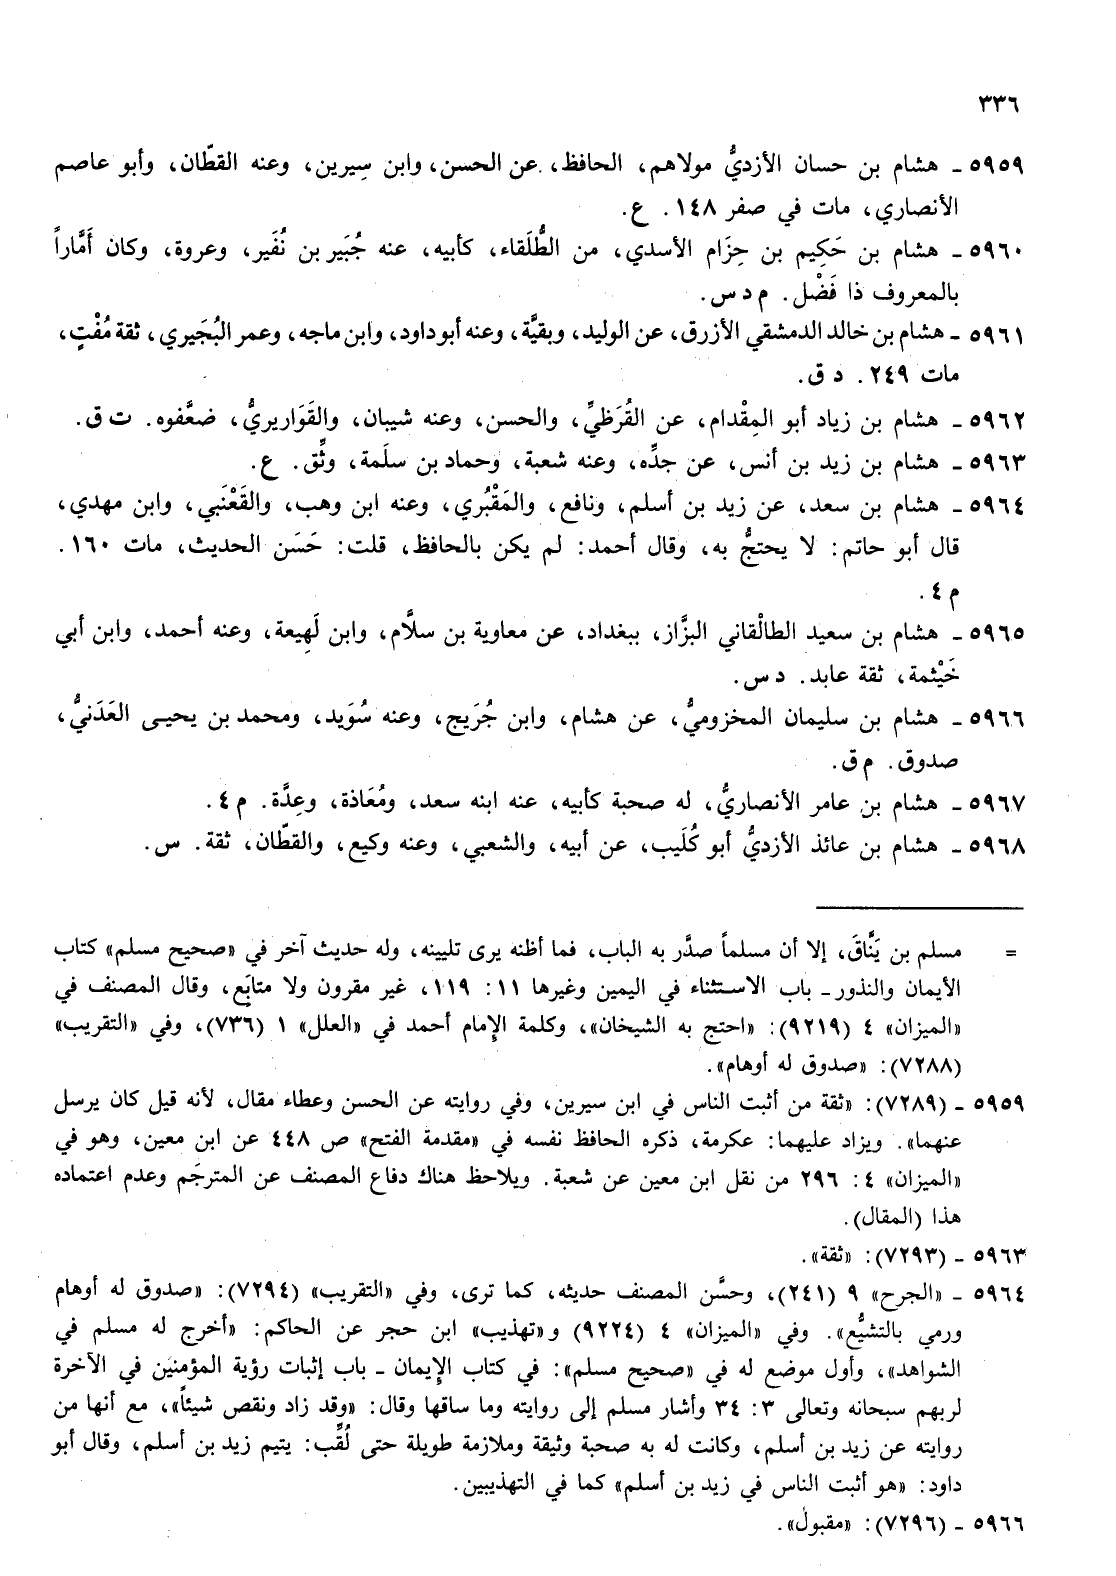 ٣٣٦
٥٩٥٩ ـ هشام بن حسان الأزديُّ مولاهم، الحافظ، عن الحسن، وابن سِيرين، وعنه القطّان، وأبو عاصم
الأنصاري، مات في صفر ١٤٨. ع.
٥٩٦٠ ـ هشام بن حَكِيم بن حِزَام الأسدي، من الطُّلَقاء، كأبيه، عنه جُبَير بن نُفَير، وعروة، وكان أَمَّاراً
بالمعروف ذا فَضْل. م د س.
٥٩٦١ ـ هشام بن خالد الدمشقي الأزرق، عن الوليد، وبقيَّة، وعنه أبو داود، وابن ماجه، وعمر البُجَيري، ثقة مُفْتٍ،
مات ٢٤٩. د ق.
٥٩٦٢ ـ هشام بن زياد أبو المِقْدام، عن القُرَظيِّ، والحسن، وعنه شيبان، والقَوَاريريُّ، ضعَّفوه. ت ق.
٥٩٦٣ ـ هشام بن زيد بن أنس، عن جدِّه، وعنه شعبة، وحماد بن سلَمة، وثِّق. ع.
٥٩٦٤ ـ هشام بن سعد، عن زيد بن أسلم، ونافع، والمَقْبُري، وعنه ابن وهب، والقَعْنَبي، وابن مهدي،
قال أبو حاتم: لا يحتجُّ به، وقال أحمد: لم يكن بالحافظ، قلت: حَسَن الحديث، مات ١٦٠.
م ٤.
٥٩٦٥ ـ هشام بن سعيد الطالْقاني البزَّاز، ببغداد، عن معاوية بن سلاَّم، وابن لَهِيعة، وعنه أحمد، وابن أبي
خَيْثمة، ثقة عابد. د س.
٥٩٦٦ ـ هشام بن سليمان المخزوميُّ، عن هشام، وابن جُرَيج، وعنه سُوَيد، ومحمد بن يحيى العَدَنيُّ،
صدوق. م ق.
٥٩٦٧ ـ هشام بن عامر الأنصاريُّ، له صحبة كأبيه، عنه ابنه سعد، ومُعَاذة، وعِدَّة. م ٤.
٥٩٦٨ ـ هشام بن عائذ الأزديُّ أبو كُلَيب، عن أبيه، والشعبي، وعنه وكيع، والقطّان، ثقة. س.
= مسلم بن يَنَّاقَ، إلا أن مسلماً صدَّر به الباب، فما أظنه يرى تليينه، وله حديث آخر في «صحيح مسلم» كتاب
الأيمان والنذور ـ باب الاستثناء في اليمين وغيرها ١١: ١١٩، غير مقرون ولا متابَع، وقال المصنف في
«الميزان» ٤ (٩٢١٩): «احتج به الشيخان»، وكلمة الإمام أحمد في «العلل» ١ (٧٣٦)، وفي «التقريب»
(٧٢٨٨): «صدوق له أوهام».
٥٩٥٩ ـ (٧٢٨٩): «ثقة من أثبت الناس في ابن سيرين، وفي روايته عن الحسن وعطاء مقال، لأنه قيل كان يرسل
عنهما». ويزاد عليهما: عكرمة، ذكره الحافظ نفسه في «مقدمة الفتح» ص ٤٤٨ عن ابن معين، وهو في
«الميزان» ٤: ٢٩٦ من نقل ابن معين عن شعبة. ويلاحظ هناك دفاع المصنف عن المترجَم وعدم اعتماده
هذا (المقال).
٥٩٦٣ ـ (٧٢٩٣): «ثقة».
٥٩٦٤ ـ «الجرح» ٩ (٢٤١)، وحسَّن المصنف حديثه، كما ترى، وفي «التقريب» (٧٢٩٤): «صدوق له أوهام
ورمي بالتشيُّع». وفي «الميزان» ٤ (٩٢٢٤) و«تهذيب» ابن حجر عن الحاكم: «أخرج له مسلم في
الشواهد»، وأول موضع له في «صحيح مسلم»: في كتاب الإيمان ـ باب إثبات رؤية المؤمنين في الآخرة
لربهم سبحانه وتعالى ٣: ٣٤ وأشار مسلم إلى روايته وما ساقها وقال: «وقد زاد ونقص شيئاً»، مع أنها من
روايته عن زيد بن أسلم، وكانت له به صحبة وثيقة وملازمة طويلة حتى لُقِّب: يتيم زيد بن أسلم، وقال أبو
داود: «هو أثبت الناس في زيد بن أسلم» كما في التهذيبين.
٥٩٦٦ ـ (٧٢٩٦): «مقبول».